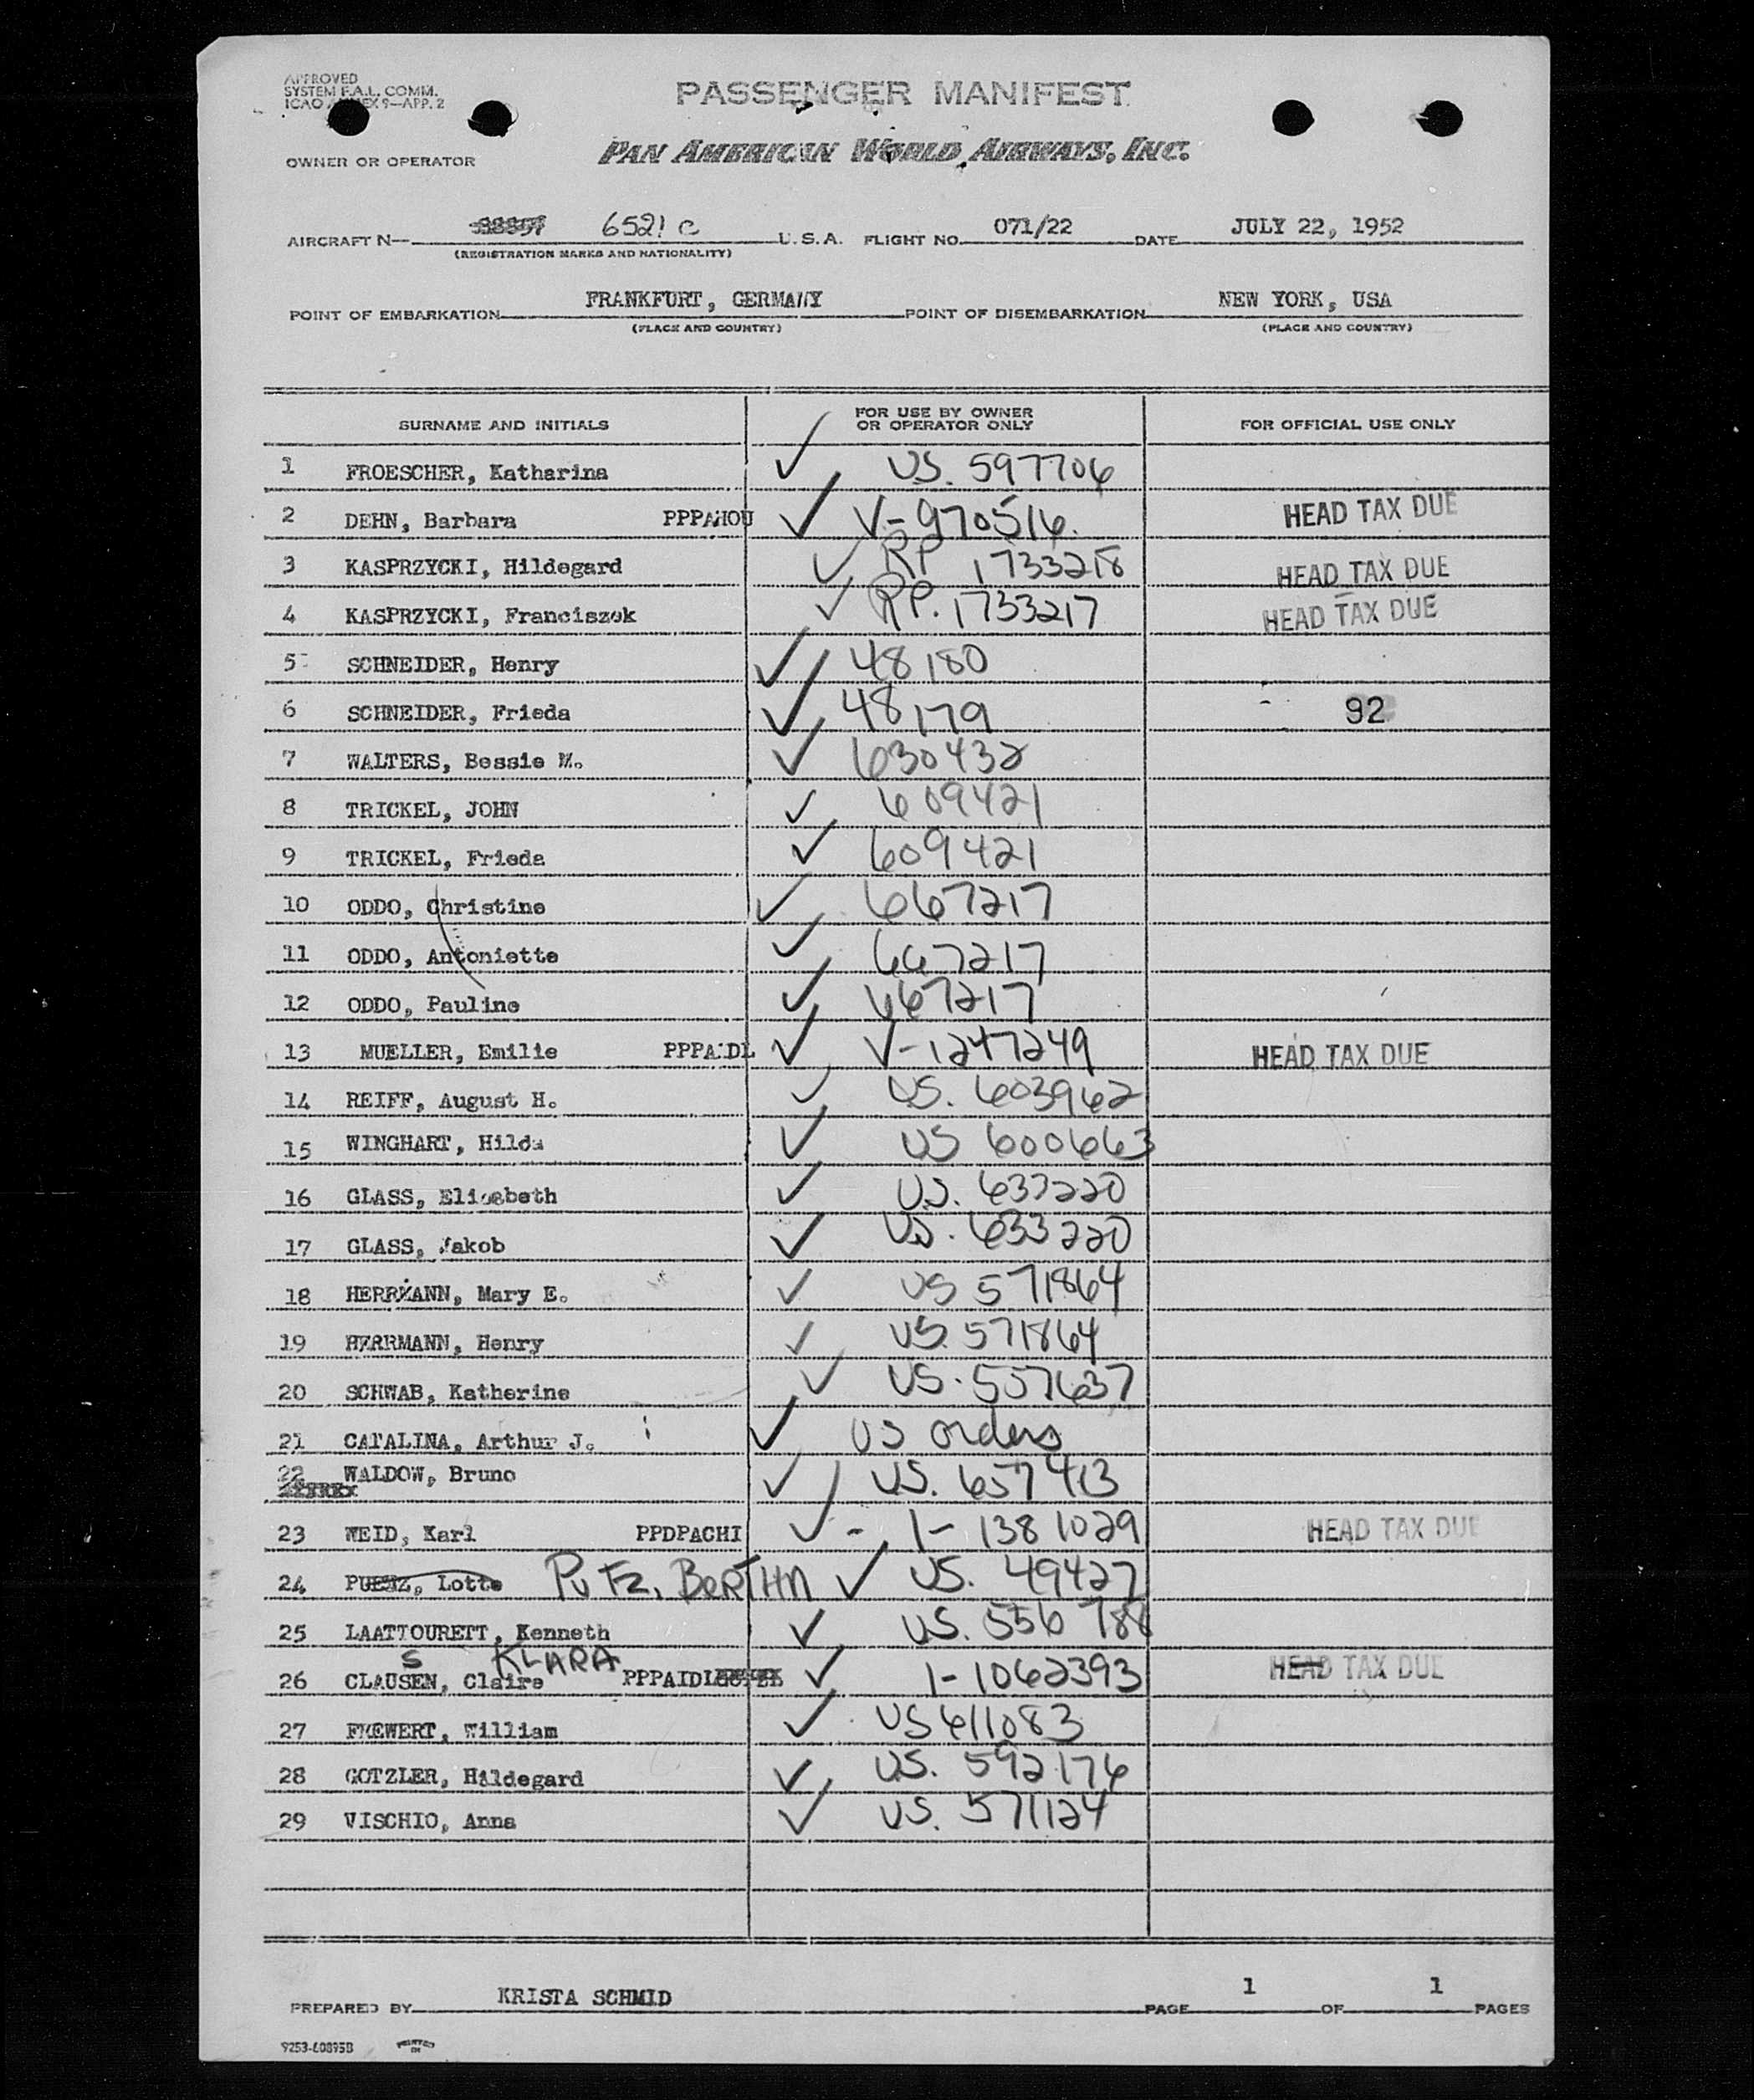 APPROVED
SYSTEM F.A.L. COMM.
ICAO ANNEX 9—APP. 2
PASSENGER MANIFEST
OWNER OR OPERATOR PAN AMERICAN WORLD AIRWAYS, INC.
AIRCRAFT N— 6521 C U.S.A. FLIGHT NO. 071/22 DATE JULY 22, 1952
(REGISTRATION MARKS AND NATIONALITY)
POINT OF EMBARKATION FRANKFURT, GERMANY POINT OF DISEMBARKATION NEW YORK, USA
(PLACE AND COUNTRY) (PLACE AND COUNTRY)
SURNAME AND INITIALS FOR USE BY OWNER OR OPERATOR ONLY FOR OFFICIAL USE ONLY
1 FROESCHER, Katharina ✓ US. 597706
2 DEHN, Barbara PPPAHOU ✓ V-970516. HEAD TAX DUE
3 KASPRZYCKI, Hildegard ✓ RP 1733218 HEAD TAX DUE
4 KASPRZYCKI, Franciszek ✓ RP. 1733217 HEAD TAX DUE
5 SCHNEIDER, Henry ✓ 48180
6 SCHNEIDER, Frieda ✓ 48179 92
7 WALTERS, Bessie M. ✓ 630432
8 TRICKEL, JOHN ✓ 609421
9 TRICKEL, Frieda ✓ 609421
10 ODDO, Christine ✓ 667217
11 ODDO, Antoniette ✓ 667217
12 ODDO, Pauline ✓ 667217
13 MUELLER, Emilie PPPAIDL ✓ V-1247249 HEAD TAX DUE
14 REIFF, August H. ✓ US. 603962
15 WINGHART, Hilda ✓ US 600663
16 GLASS, Elisabeth ✓ U.S. 633220
17 GLASS, Jakob ✓ US. 633220
18 HERRMANN, Mary E. ✓ US 571864
19 HERRMANN, Henry ✓ US. 571864
20 SCHWAB, Katherine ✓ US. 557637
21 CATALINA, Arthur J. ✓ US orders
22 WALDOW, Bruno ✓ US. 657413
23 WEID, Karl PPDPACHI ✓ - 1-1381029 HEAD TAX DUE
24 PUETZ, Lotte PUTZ, BERTHA ✓ US. 49427
25 LAATTOURETT, Kenneth ✓ US. 556788
S KLARA
26 CLAUSEN, Claire PPPAIDL ✓ 1-1062393 HEAD TAX DUE
27 FREWERT, William ✓ US 611083
28 GOTZLER, Hildegard ✓ US. 592176
29 VISCHIO, Anna ✓ US. 571124
PREPARED BY KRISTA SCHMID PAGE 1 OF 1 PAGES
9253-60895B PRINTED